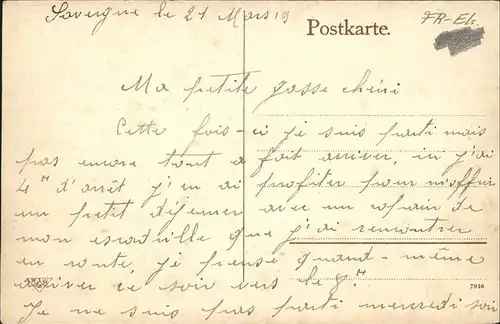 Saverne le 21 Mars 19
Postkarte.
FR-Els.
Ma petite gosse chéri
Cette fois-ci je suis parti mais
pas encore tout a fait arriver, ici j'ai
4 H d'arrêt j'en ai profiter pour m'offrir
un petit déjeuner avec un copain de
mon escadrille que j'ai rencontrer
en route, je pense quand-même
arriver ce soir vers les 8 H
7946
Je ne suis pas parti mercredi soir